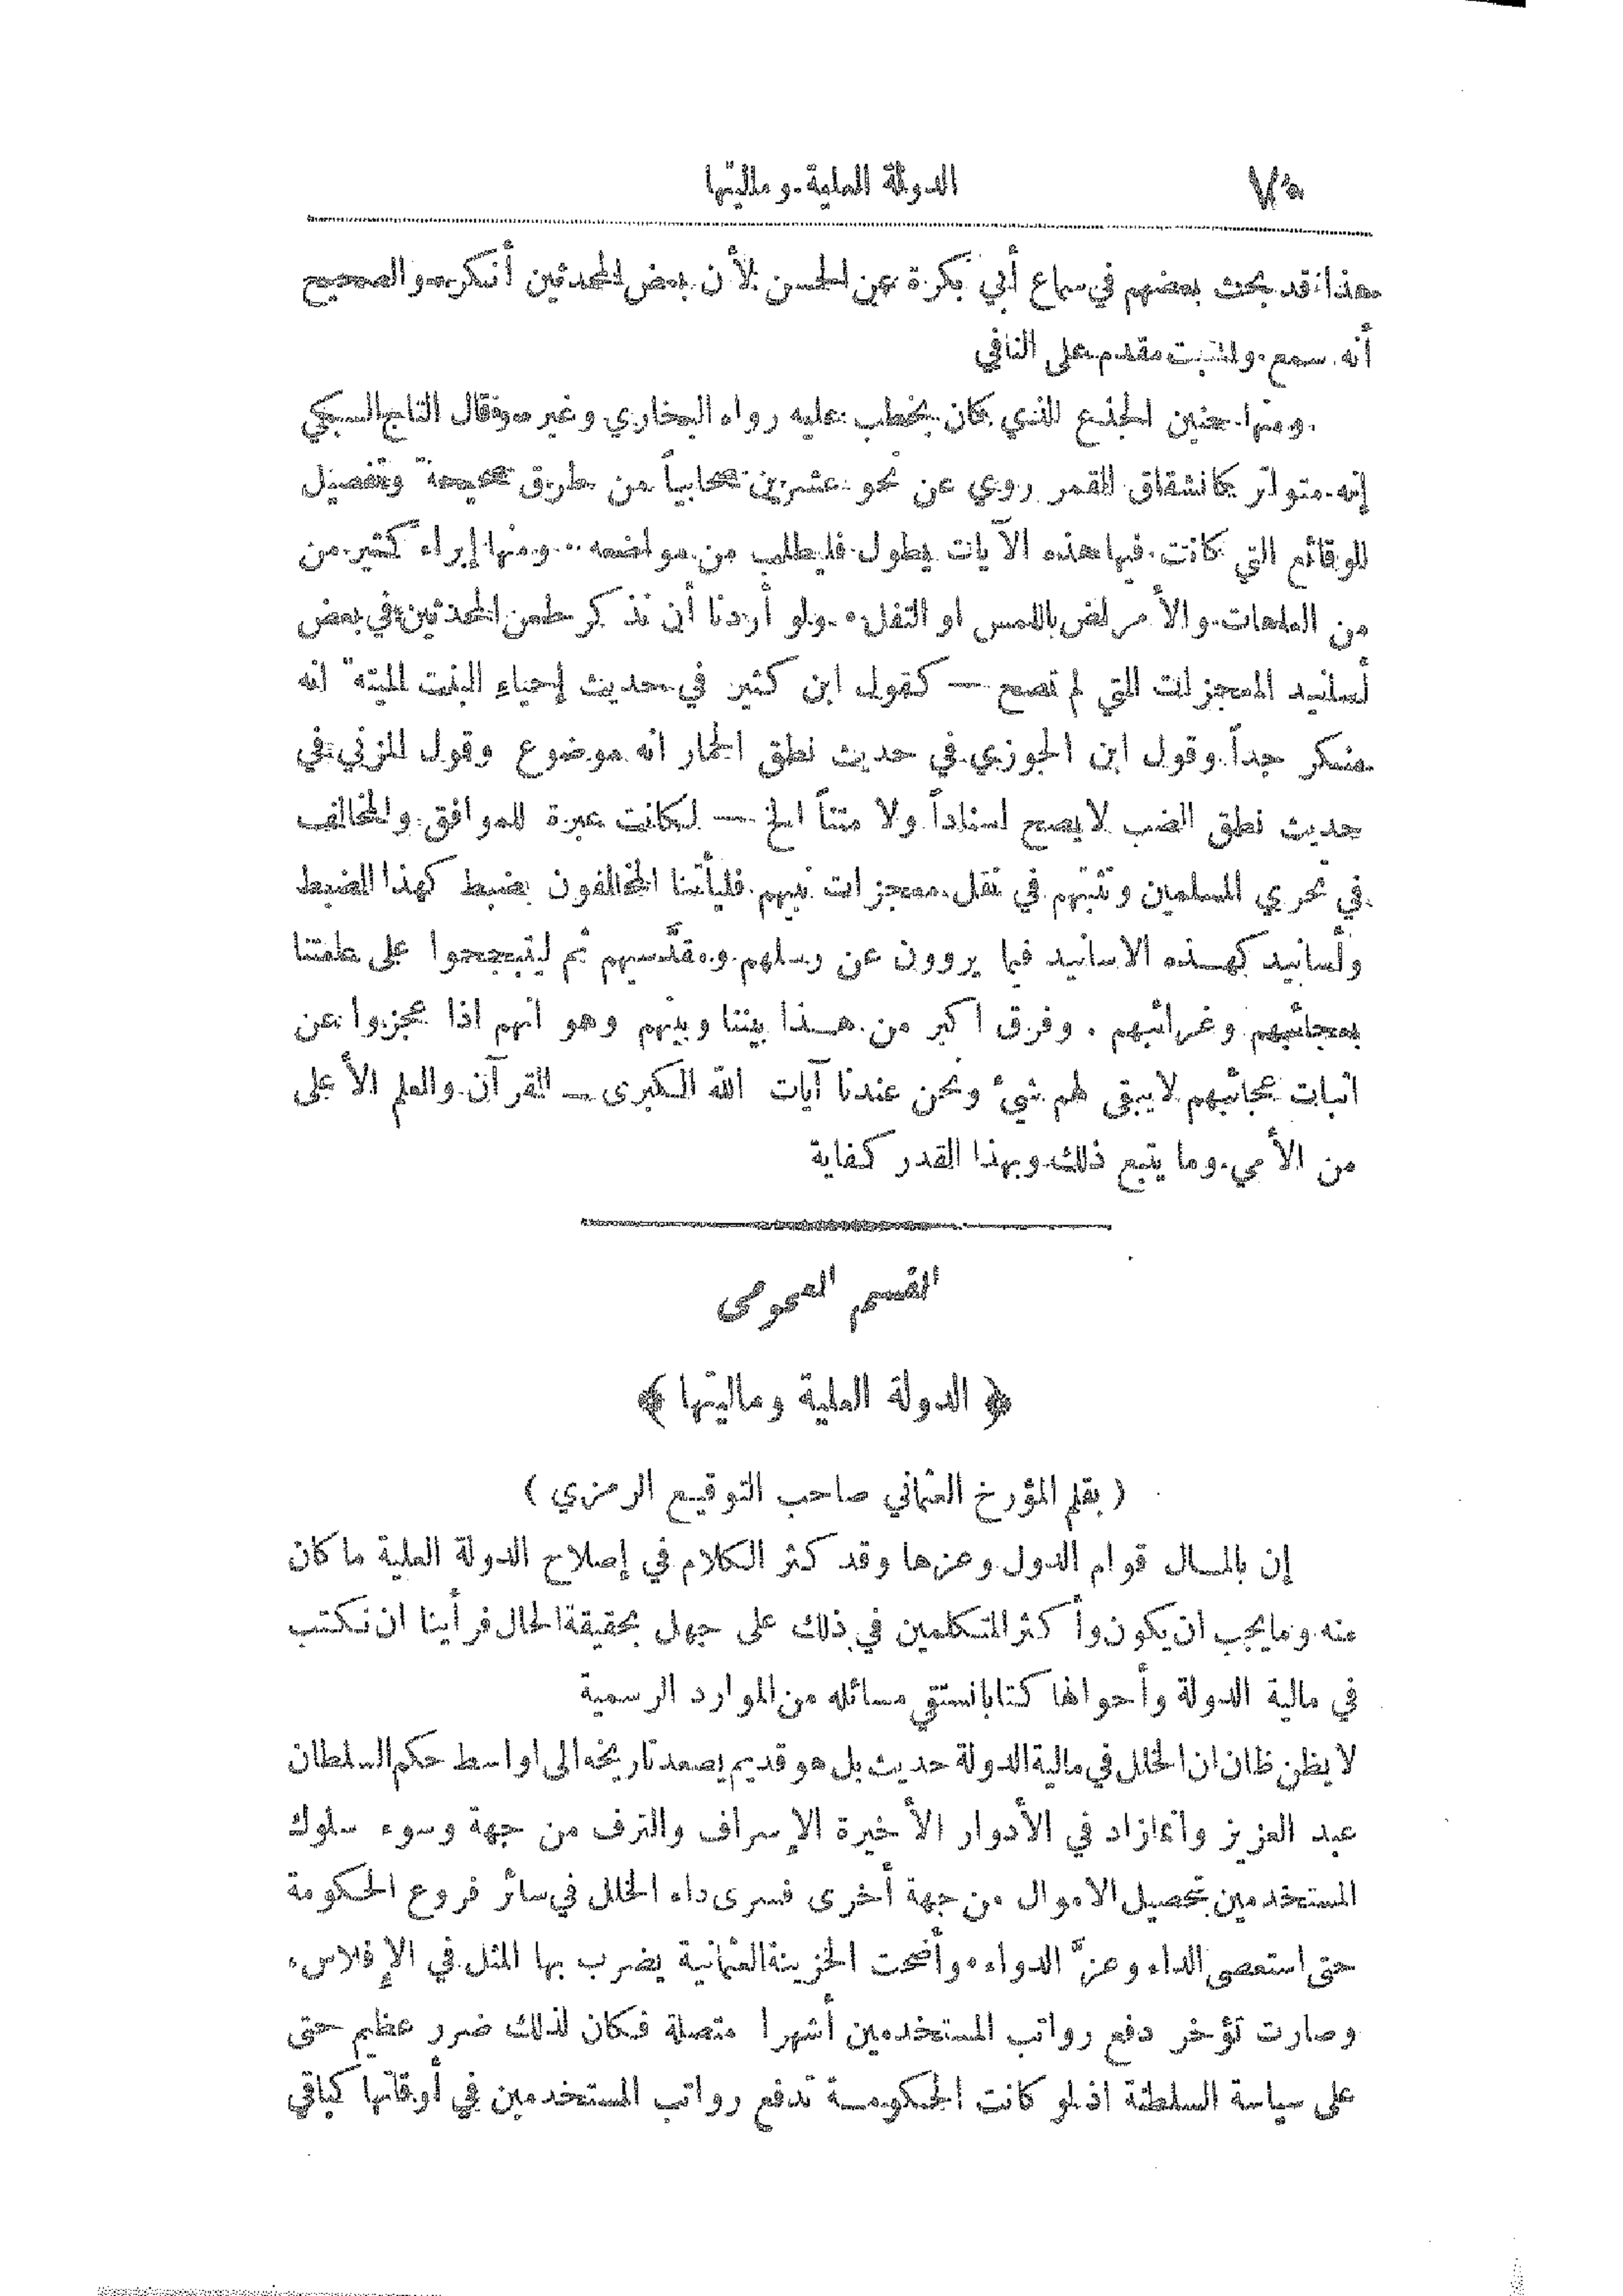 الدولة العلية وماليتها
هذا قد بحث بعضهم في سماع أبي بكرة عن الحسن لأن بعض المحدثين أنكره والصحيح
أنه سمع والمثبت مقدم على النافي
ومنها حنين الجذع الذي كان يخطب عليه رواه البخاري وغيره وقال التاج السبكي
إنه متواتر كانشقاق القمر روي عن نحو عشرين صحابياً من طرق صحيحة وتفصيل
الوقائع التي كانت فيها هذه الآيات يطول فليطلب من مواضعه .. ومنها إبراء كثير من
من العاهات والأمراض باللمس او التفل. ولو أردنا أن نذكر طعن المحدثين في بعض
أسانيد المعجزات التي لم تصح — كقول ابن كثير في حديث إحياء البنت الميتة انه
منكر جداً وقول ابن الجوزي في حديث نطق الحمار انه موضوع وقول المزني في
حديث نطق الضب لا يصح اسناداً ولا متناً الخ — لكانت عبرة للموافق والمخالف
في تحري المسلمين وتثبتهم في نقل معجزات نبيهم فليأتنا المخالفون بضبط كهذا الضبط
وأسانيد كهذه الاسانيد فيما يروون عن رسلهم ومقدَّسيهم ثم ليتبجحوا على ملتنا
بعجائبهم وغرائبهم . وفرق اكبر من هذا بيننا وبينهم وهو انهم اذا عجزوا عن
اثبات عجائبهم لا يبقى لهم شيء ونحن عندنا آيات الله الكبرى — القرآن والعلم الأعلى
من الأمي وما يتبع ذلك وبهذا القدر كفاية
القسم العمومى
﴿ الدولة العلية وماليتها ﴾
( بقلم المؤرخ العثماني صاحب التوقيع الرمزي )
إن بالمال قوام الدول وعزها وقد كثر الكلام في إصلاح الدولة العلية ما كان
منه وما يجب ان يكون وأكثر المتكلمين في ذلك على جهل بحقيقة الحال فرأينا ان نكتب
في مالية الدولة وأحوالها كتابا نستقي مسائله من الموارد الرسمية
لا يظن ظان ان الخلل في مالية الدولة حديث بل هو قديم يصعد تاريخه الى اواسط حكم السلطان
عبد العزيز وانما زاد في الأدوار الأخيرة الإسراف والترف من جهة وسوء سلوك
المستخدمين بتحصيل الاموال من جهة أخرى فسرى داء الخلل في سائر فروع الحكومة
حتى استعصى الداء وعزَّ الدواء. وأضحت الخزينة العثمانية يضرب بها المثل في الإفلاس.
وصارت تؤخر دفع رواتب المستخدمين أشهرا متصلة فكان لذلك ضرر عظيم حتى
على سياسة السلطنة اذ لو كانت الحكومة تدفع رواتب المستخدمين في أوقاتها كباقي